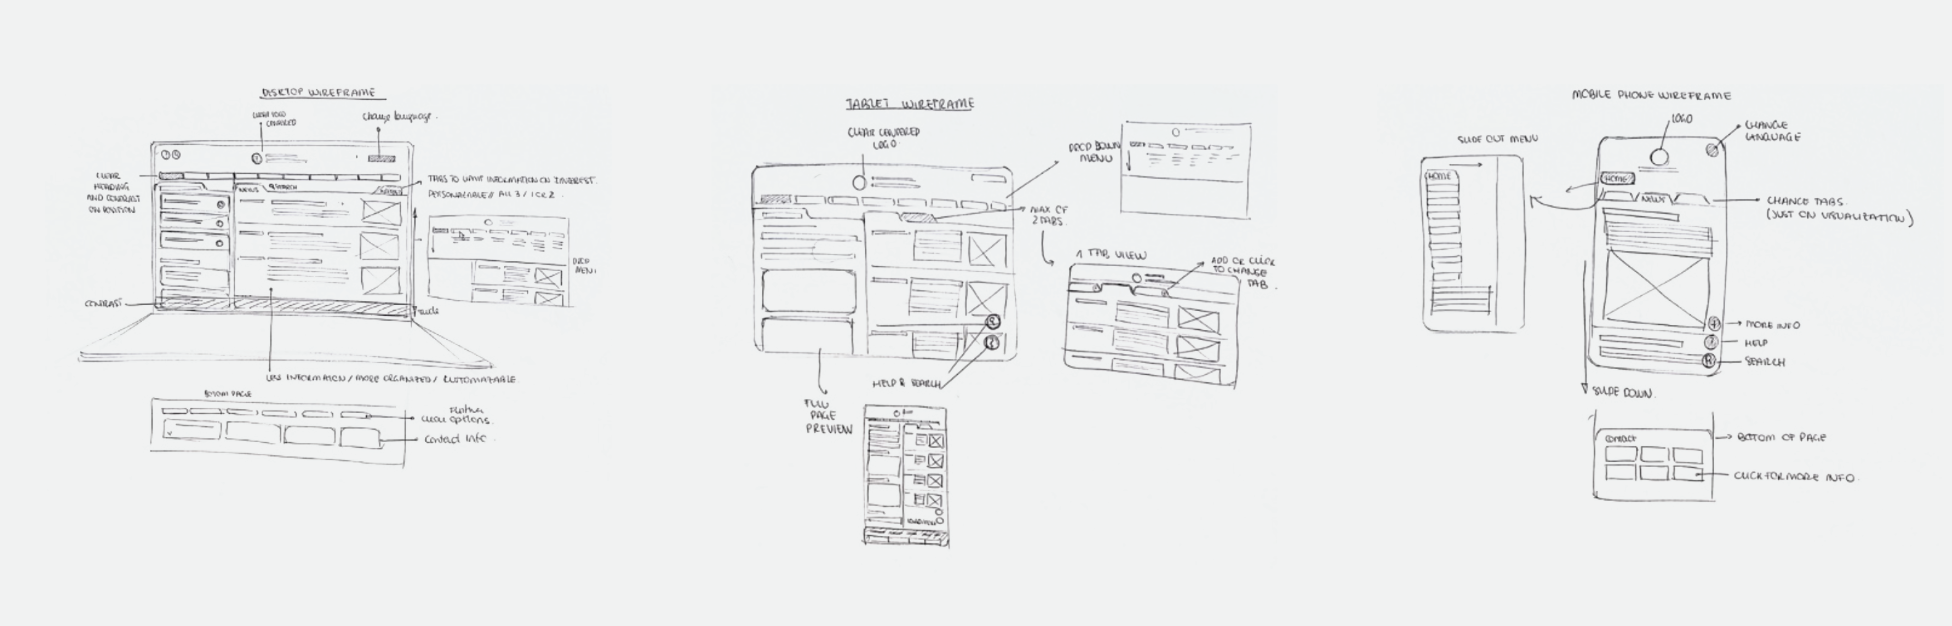 DESKTOP WIREFRAME
CENTERED
Change language.
CLEAR
HEADING
AND CONTRAST
ON POSITION
NEWS
SEARCH
TABS TO LIMIT INFORMATION ON INTEREST.
PERSONALIZABLE / ALL 3 / 1 OR 2.
DROP
MENU
CONTRAST
LESS INFORMATION / MORE ORGANIZED / CUSTOMIZABLE
BOTTOM PAGE
clear options.
Contact info.
TABLET WIREFRAME
CLEAR CENTERED
LOGO.
DROP DOWN
MENU
MAX OF
2 TABS.
1 TAB VIEW
ADD OR CLICK
TO CHANGE
TAB.
HELP & SEARCH
FULL
PAGE
PREVIEW
MOBILE PHONE WIREFRAME
LOGO
CHANGE
LANGUAGE
SLIDE OUT MENU
HOME
HOME
NEWS
CHANGE TABS.
(JUST ON VISUALIZATION)
MORE INFO
HELP
SEARCH
SLIDE DOWN.
CONTACT
BOTTOM OF PAGE
CLICK FOR MORE INFO.